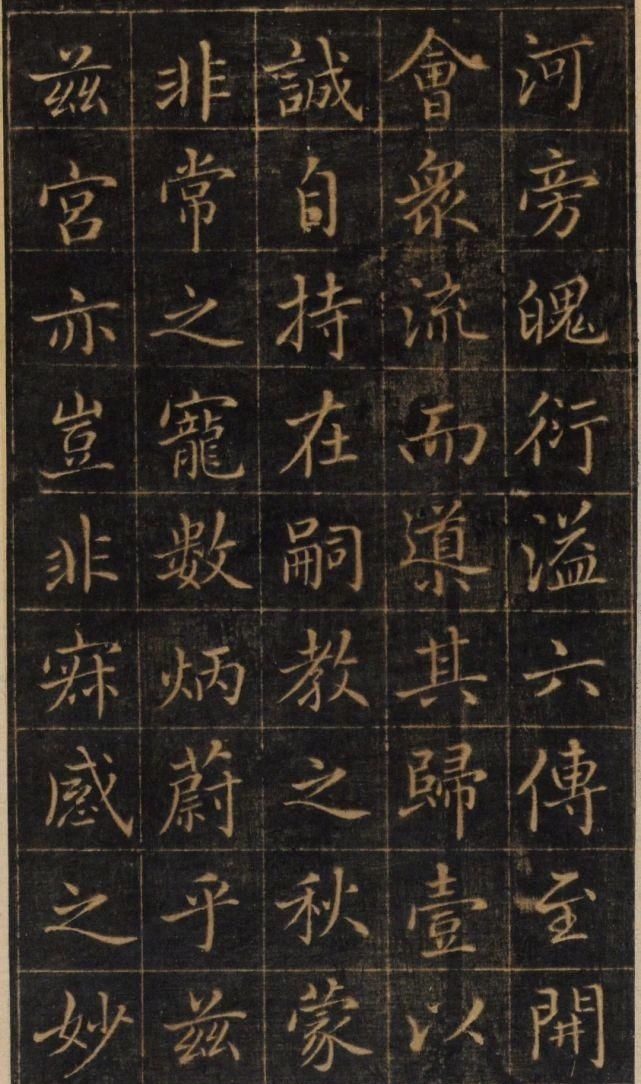 河旁魄衍溢六傳至開
會衆流而導其歸壹以
誠自持在嗣教之秋蒙
非常之寵數炳蔚乎兹
兹宮亦豈非寂感之妙